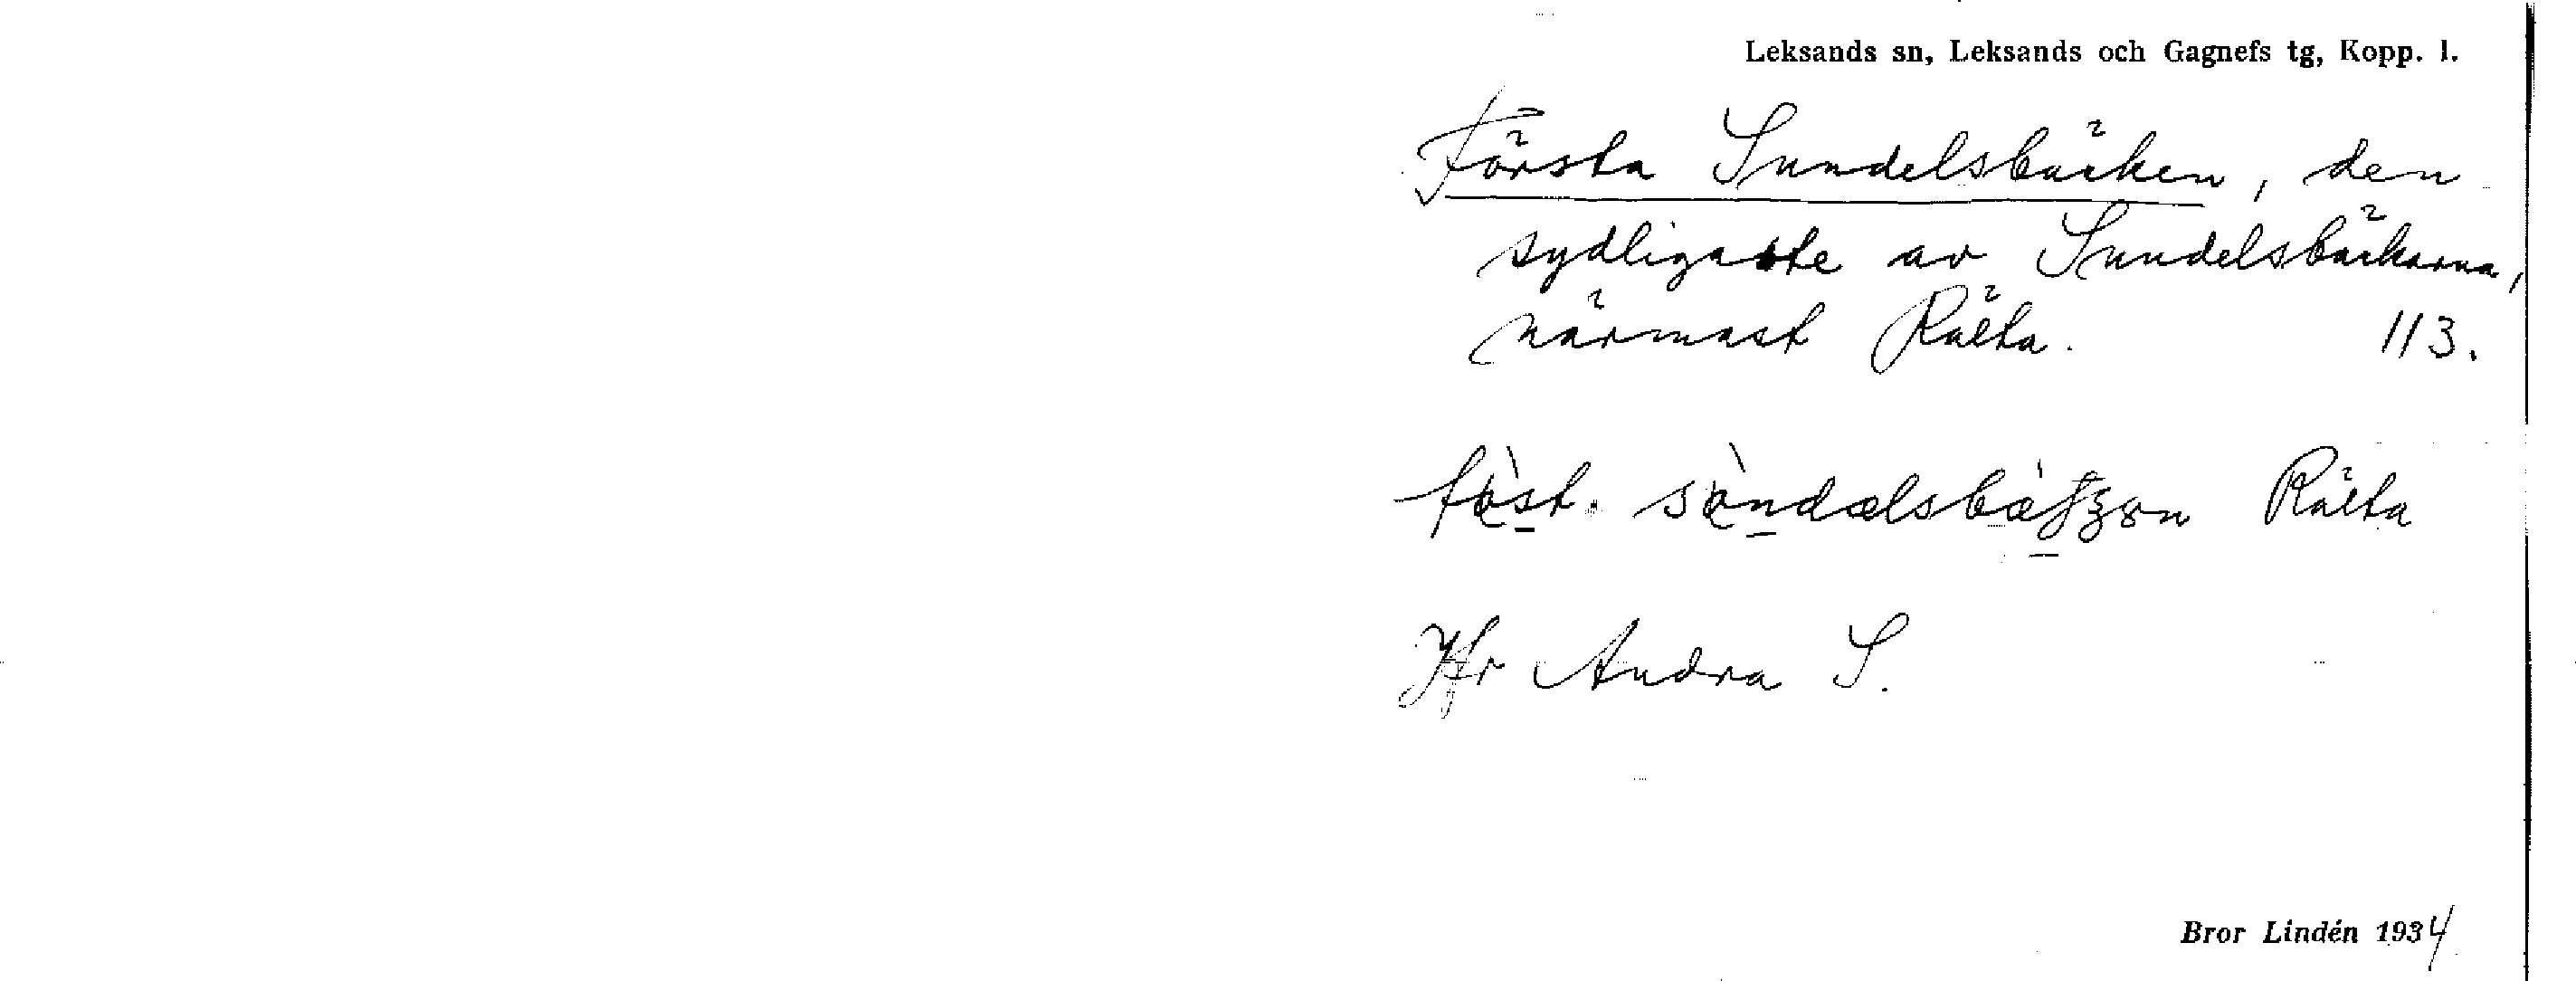 Leksands sn, Leksands och Gagnefs tg, Kopp. l.
Första Sundelsbäcken, den
sydligaste av Sundelsbäckarna,
närmast Rälta. 113.
Rälta
Jfr Andra S.
Bror Lindén 1934